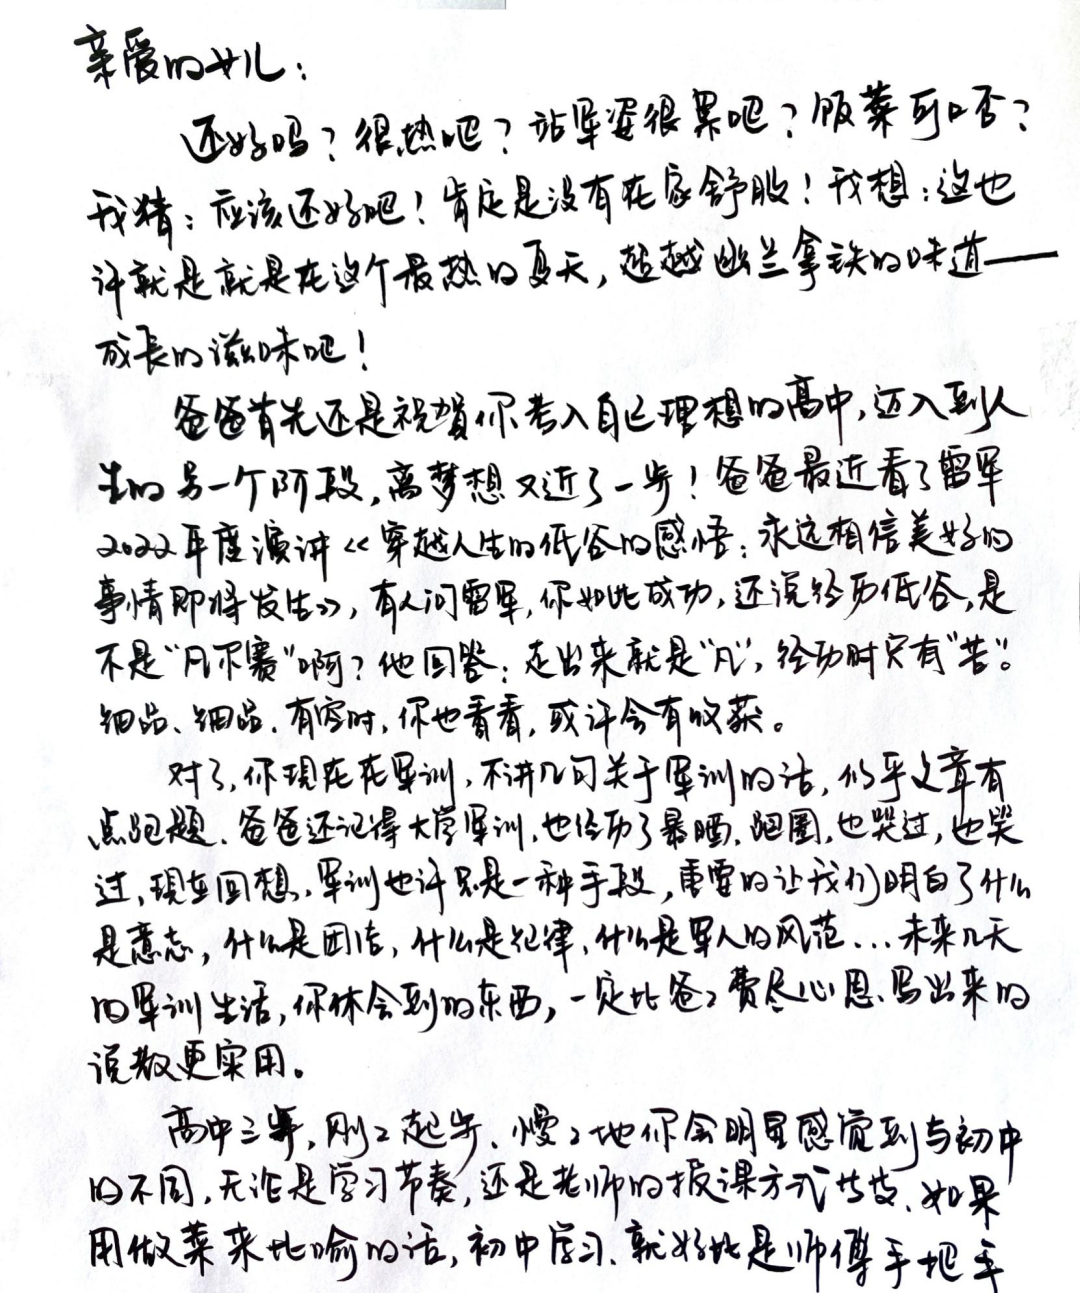 亲爱的女儿：
还好吗？很热吧？站军姿很累吧？饭菜可口否？
我猜：应该还好吧！肯定是没有在家舒服！我想：这也
许就是就是在这个最热的夏天，超越幽兰拿铁的味道——
成长的滋味吧！
爸爸首先还是祝贺你考入自己理想的高中，迈入到人
生的另一个阶段，离梦想又近了一步！爸爸最近看了雷军
2022年度演讲《穿越人生的低谷的感悟：永远相信美好的
事情即将发生》，有人问雷军，你如此成功，还说经历低谷，是
不是"凡尔赛"啊？他回答：走出来就是"凡"，经历时只有"苦"。
细品、细品、有空时，你也看看，或许会有收获。
对了，你现在在军训，不讲几句关于军训的话，似乎文章有
点跑题、爸爸还记得大学军训，也经历了暴晒、跑圈，也哭过，也哭
过，现在回想，军训也许只是一种手段，重要的让我们明白了什么
是意志，什么是团结，什么是纪律，什么是军人的风范…未来几天
的军训生活，你体会到的东西，一定比爸爸费尽心思、写出来的
说教更实用。
高中三年，刚刚起步、慢慢地你会明显感觉到与初中
的不同，无论是学习节奏，还是老师的授课方式技、如果
用做菜来比喻的话，初中学习、就好比是师傅手把手